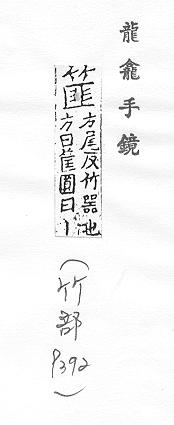 龍龕手鏡
篚
方尾反竹器也
方曰筐圓曰丨
(竹部
P392)